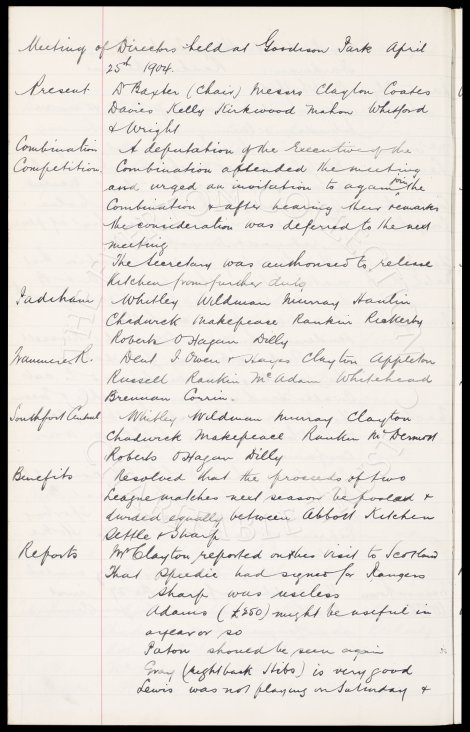 Meeting of Directors held at Goodison Park April
25th 1904.
Present Dr Baxter (Chair) Messrs Clayton Coates
Davies Kelly Kirkwood Mahon Whitford
& Wright
Combination A deputation of the Executive of the
Competition. Combination attended the meeting
and urged an invitation to again join the
Combination & after hearing their remarks
the consideration was deferred to the next
meeting
The Secretary was authorised to release
Kitchen from further duty
Padiham Whitley Wildman Murray Hamlin
Chadwick Makepeace Rankin Rickerby
Roberts O'Hagan Dilly
R. Dent J. Owen + Clayton Appleton
Russell Rankin McAdam Whitehead
Brennan Corrin.
Southport Central Whitley Wildman Murray Clayton
Chadwick Makepeace Rankin McDermott
Roberts O'Hagan Dilly
Benefits Resolved that the proceeds of two
League matches next season be pooled &
divided equally between Abbott Kitchen
Settle & Sharp
Reports Mr Clayton reported on his visit to Scotland
That Speedie had signed for Rangers
Sharp was useless
Adams (£250) might be useful in
a year or so
Paton should be seen again
Gray (right back Hibs) is very good
Lewis was not playing on Saturday &